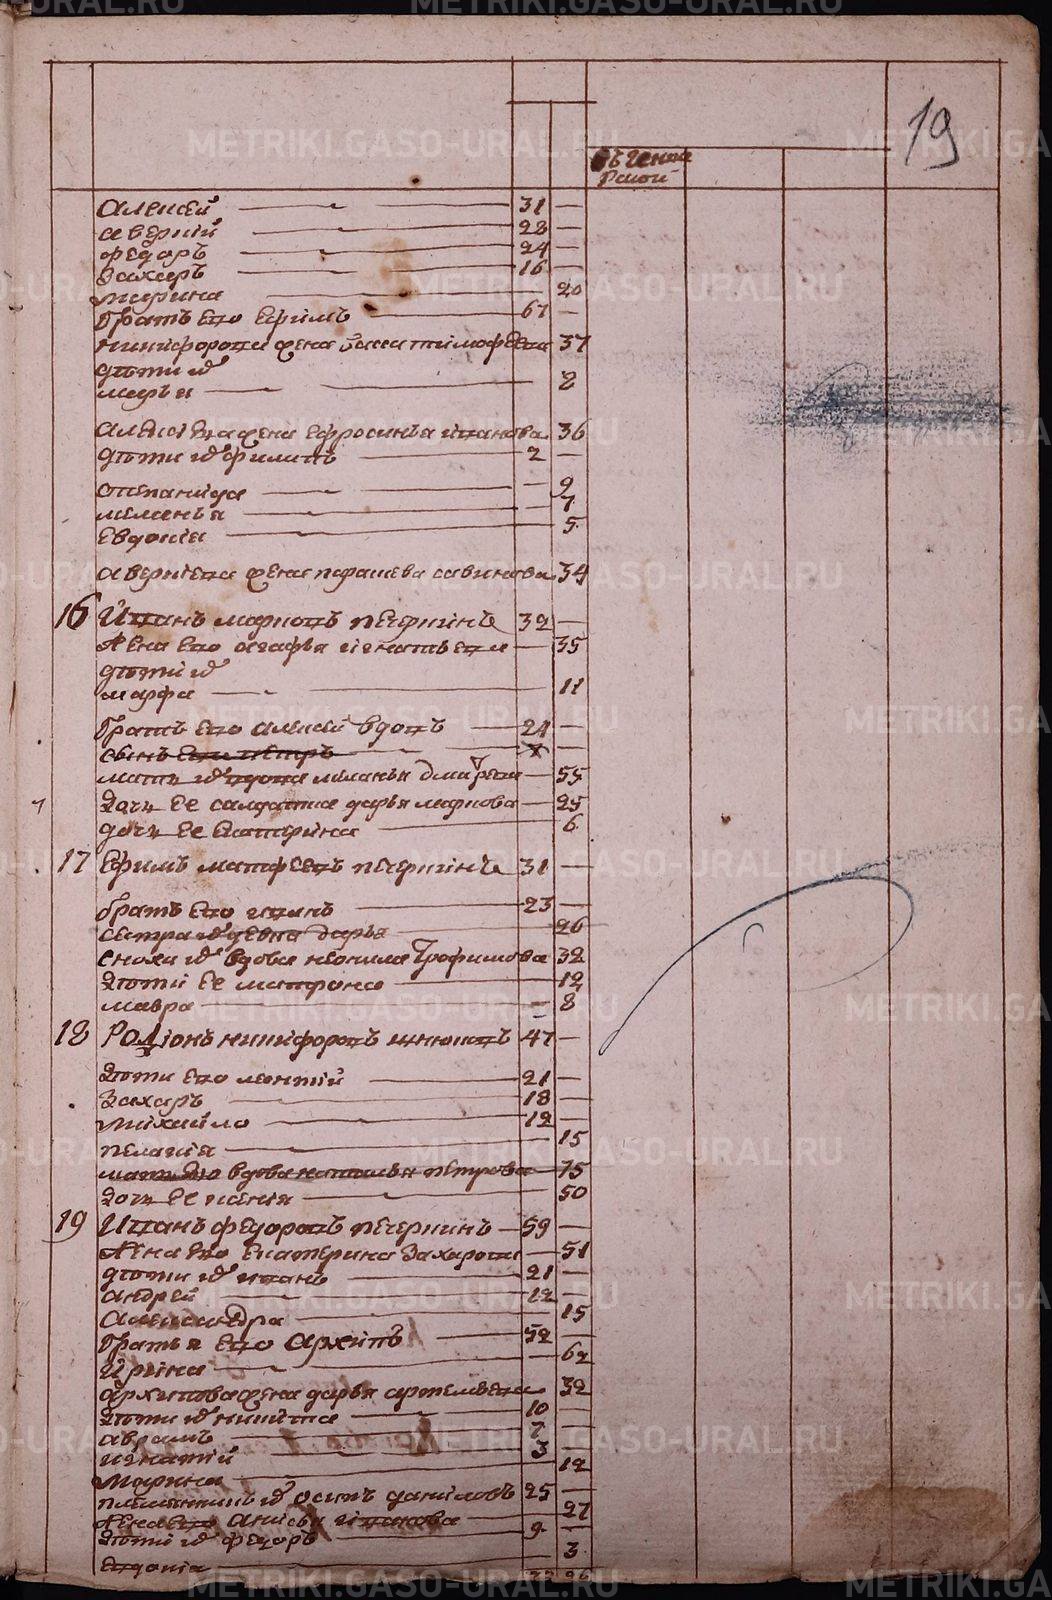 METRIKI.GASO-URAL.RU
19
Алексей 31 —
аверкий 28 —
федоръ 24 —
Захаръ 16 —
марина 20
братъ ево Ефимъ 67 —
никифорова жена тимофѣева 37
дѣти ихъ
марья 2
алексѣева жена ефросинья иванова 36
дѣти ихъ филипъ 2 —
степанида — 9
меланья — 7
евдокия 5
аверкиева жена парасковья савинова 34
16 Иванъ марковъ печеркинъ 32 —
жена ево агафья игнатьева — 35
дѣти ихъ
марфа 11
братъ ево алексей вдовъ 24 —
сынъ ево петръ —
мать ихъ вдова меланья дмитрева — 55
дочь ее салдатка дарья маркова — 25
дочь ее катарина 6
17 Ефимъ матфеевъ печеркинъ 31 —
братъ ево иванъ 23 —
сестра ихъ девка дарья 26
сноха ихъ вдова неонила трофимова 32
дѣти ее матрона 12
мавра — 8
18 Родионъ никифоровъ 47 —
дѣти ево леонтий 21 —
Захаръ 18 —
михайло 12 —
пелагия 15
мать ево вдова наталья петрова 75
дочь ее ксения 50
19 Иванъ федоровъ печеркинъ 59 —
жена ево екатерина Захарова — 51
дѣти ихъ иванъ 21 —
андрей 12 —
александра 15
братья ево Архипъ 52 —
ирина — 62
архипова жена дарья артемьева 32
дѣти ихъ никита 10 —
аврамъ 7 —
игнатий 3 —
марина 12
племянникъ ихъ осипъ даниловъ 25 —
жена ево анисья иванова 27
дѣти ихъ федоръ 9 —
евдокия 3